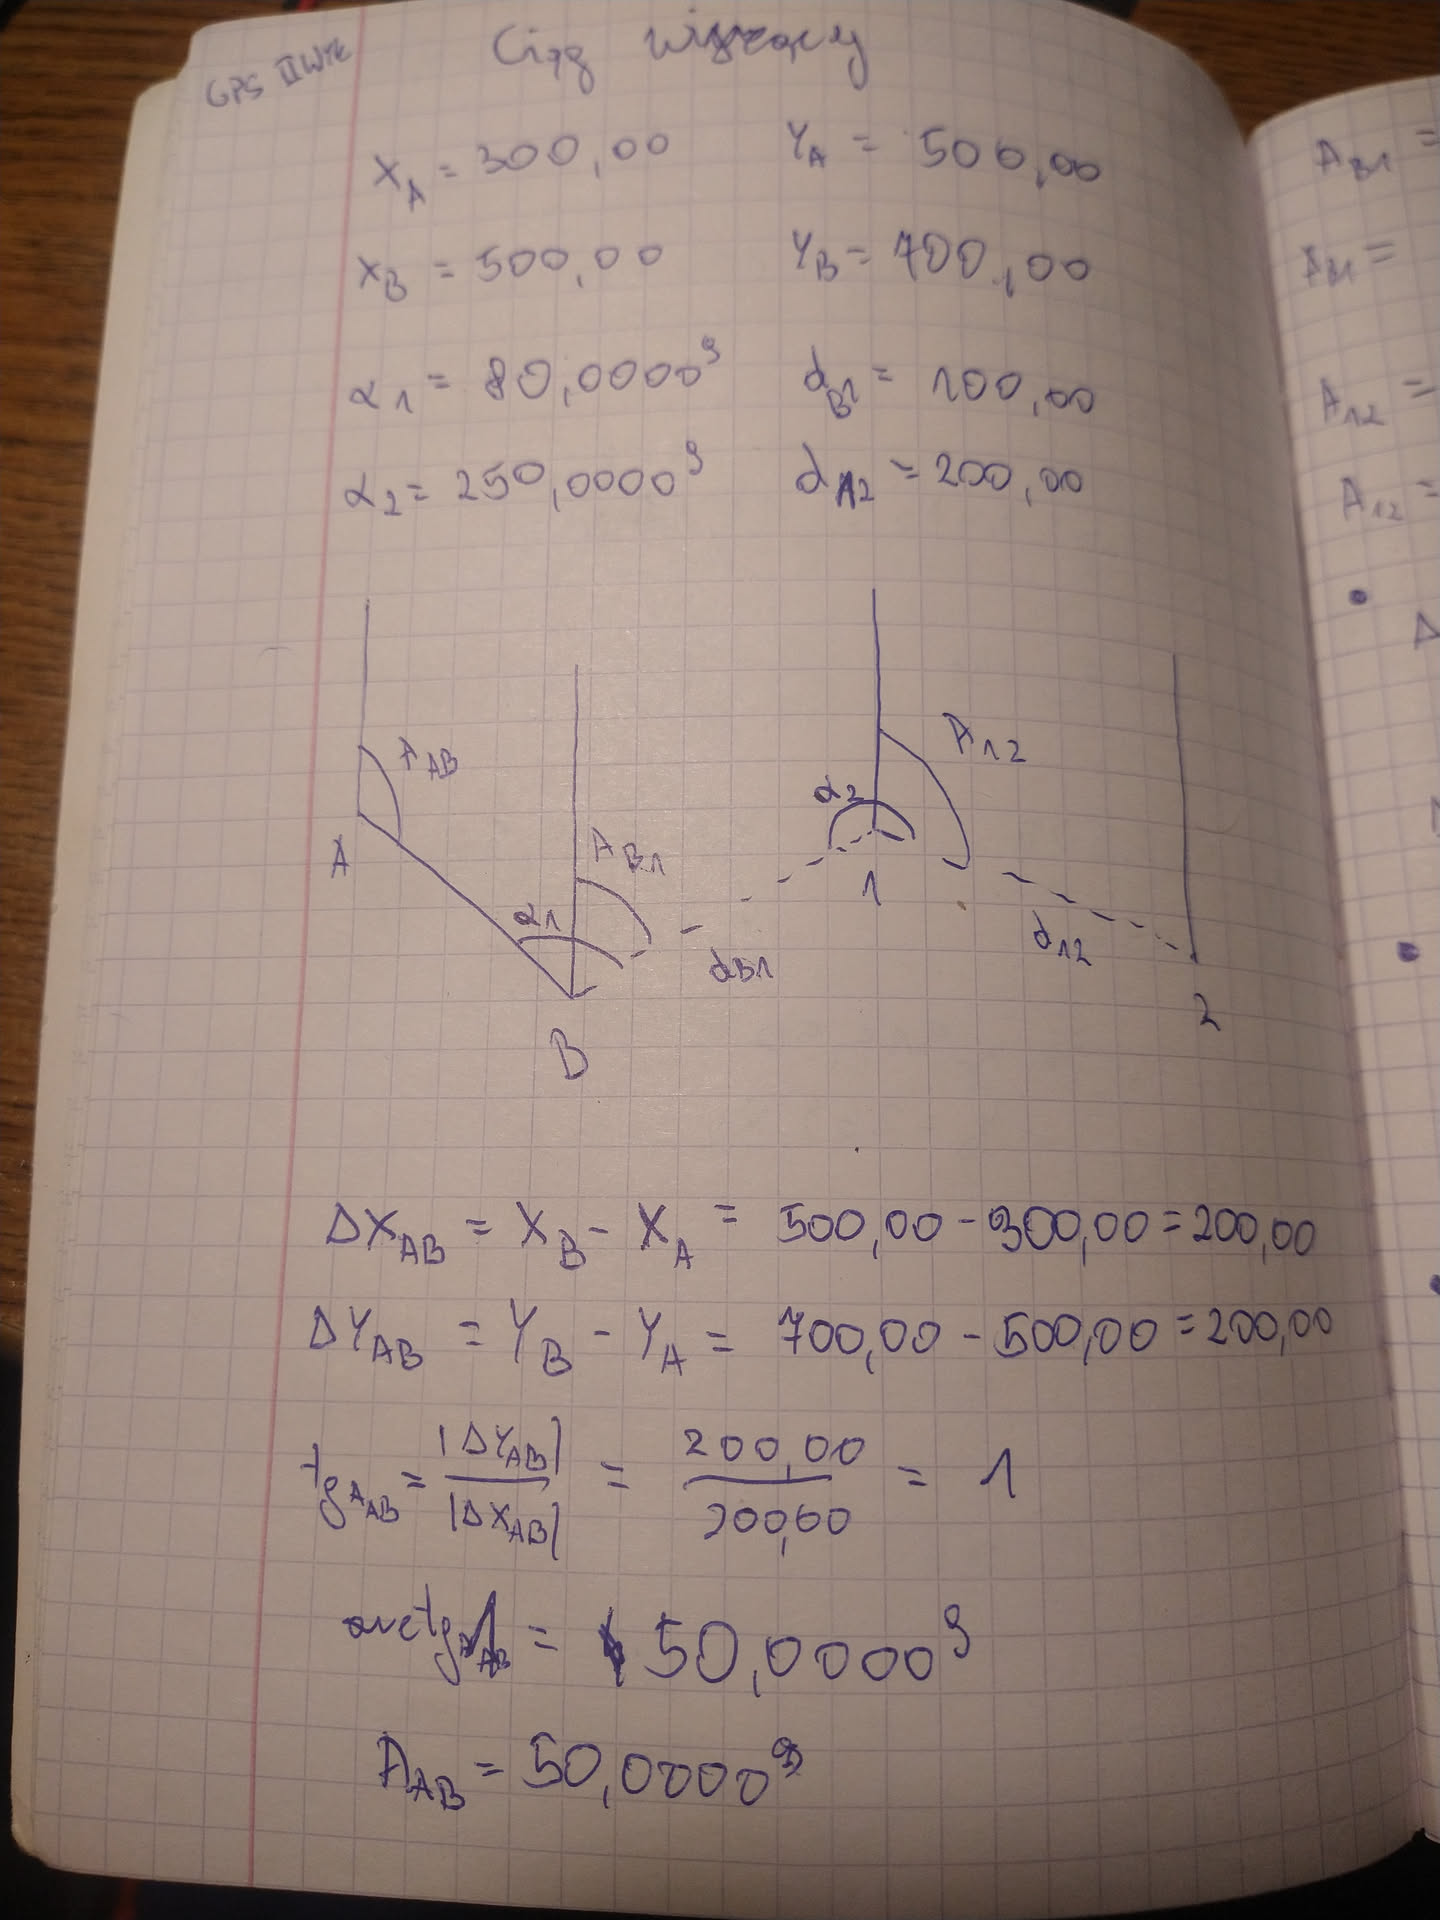 GPS II WYK
Ciąg wiszący
X_A = 300,00 Y_A = 500,00
X_B = 500,00 Y_B = 700,00
α1 = 80,0000^g d_B1 = 100,00
α2 = 250,0000^g d_12 = 200,00
A_AB
A
α1
A_B1
B
d_B1
α2
A_12
1
d_12
2
ΔX_AB = X_B - X_A = 500,00 - 300,00 = 200,00
ΔY_AB = Y_B - Y_A = 700,00 - 500,00 = 200,00
tg A_AB = |ΔY_AB| / |ΔX_AB| = 200,00 / 200,00 = 1
arctg A_AB = 50,0000^g
A_AB = 50,0000^g
A_B1 =
A_B1 =
A_12 =
A_12 =
Δ